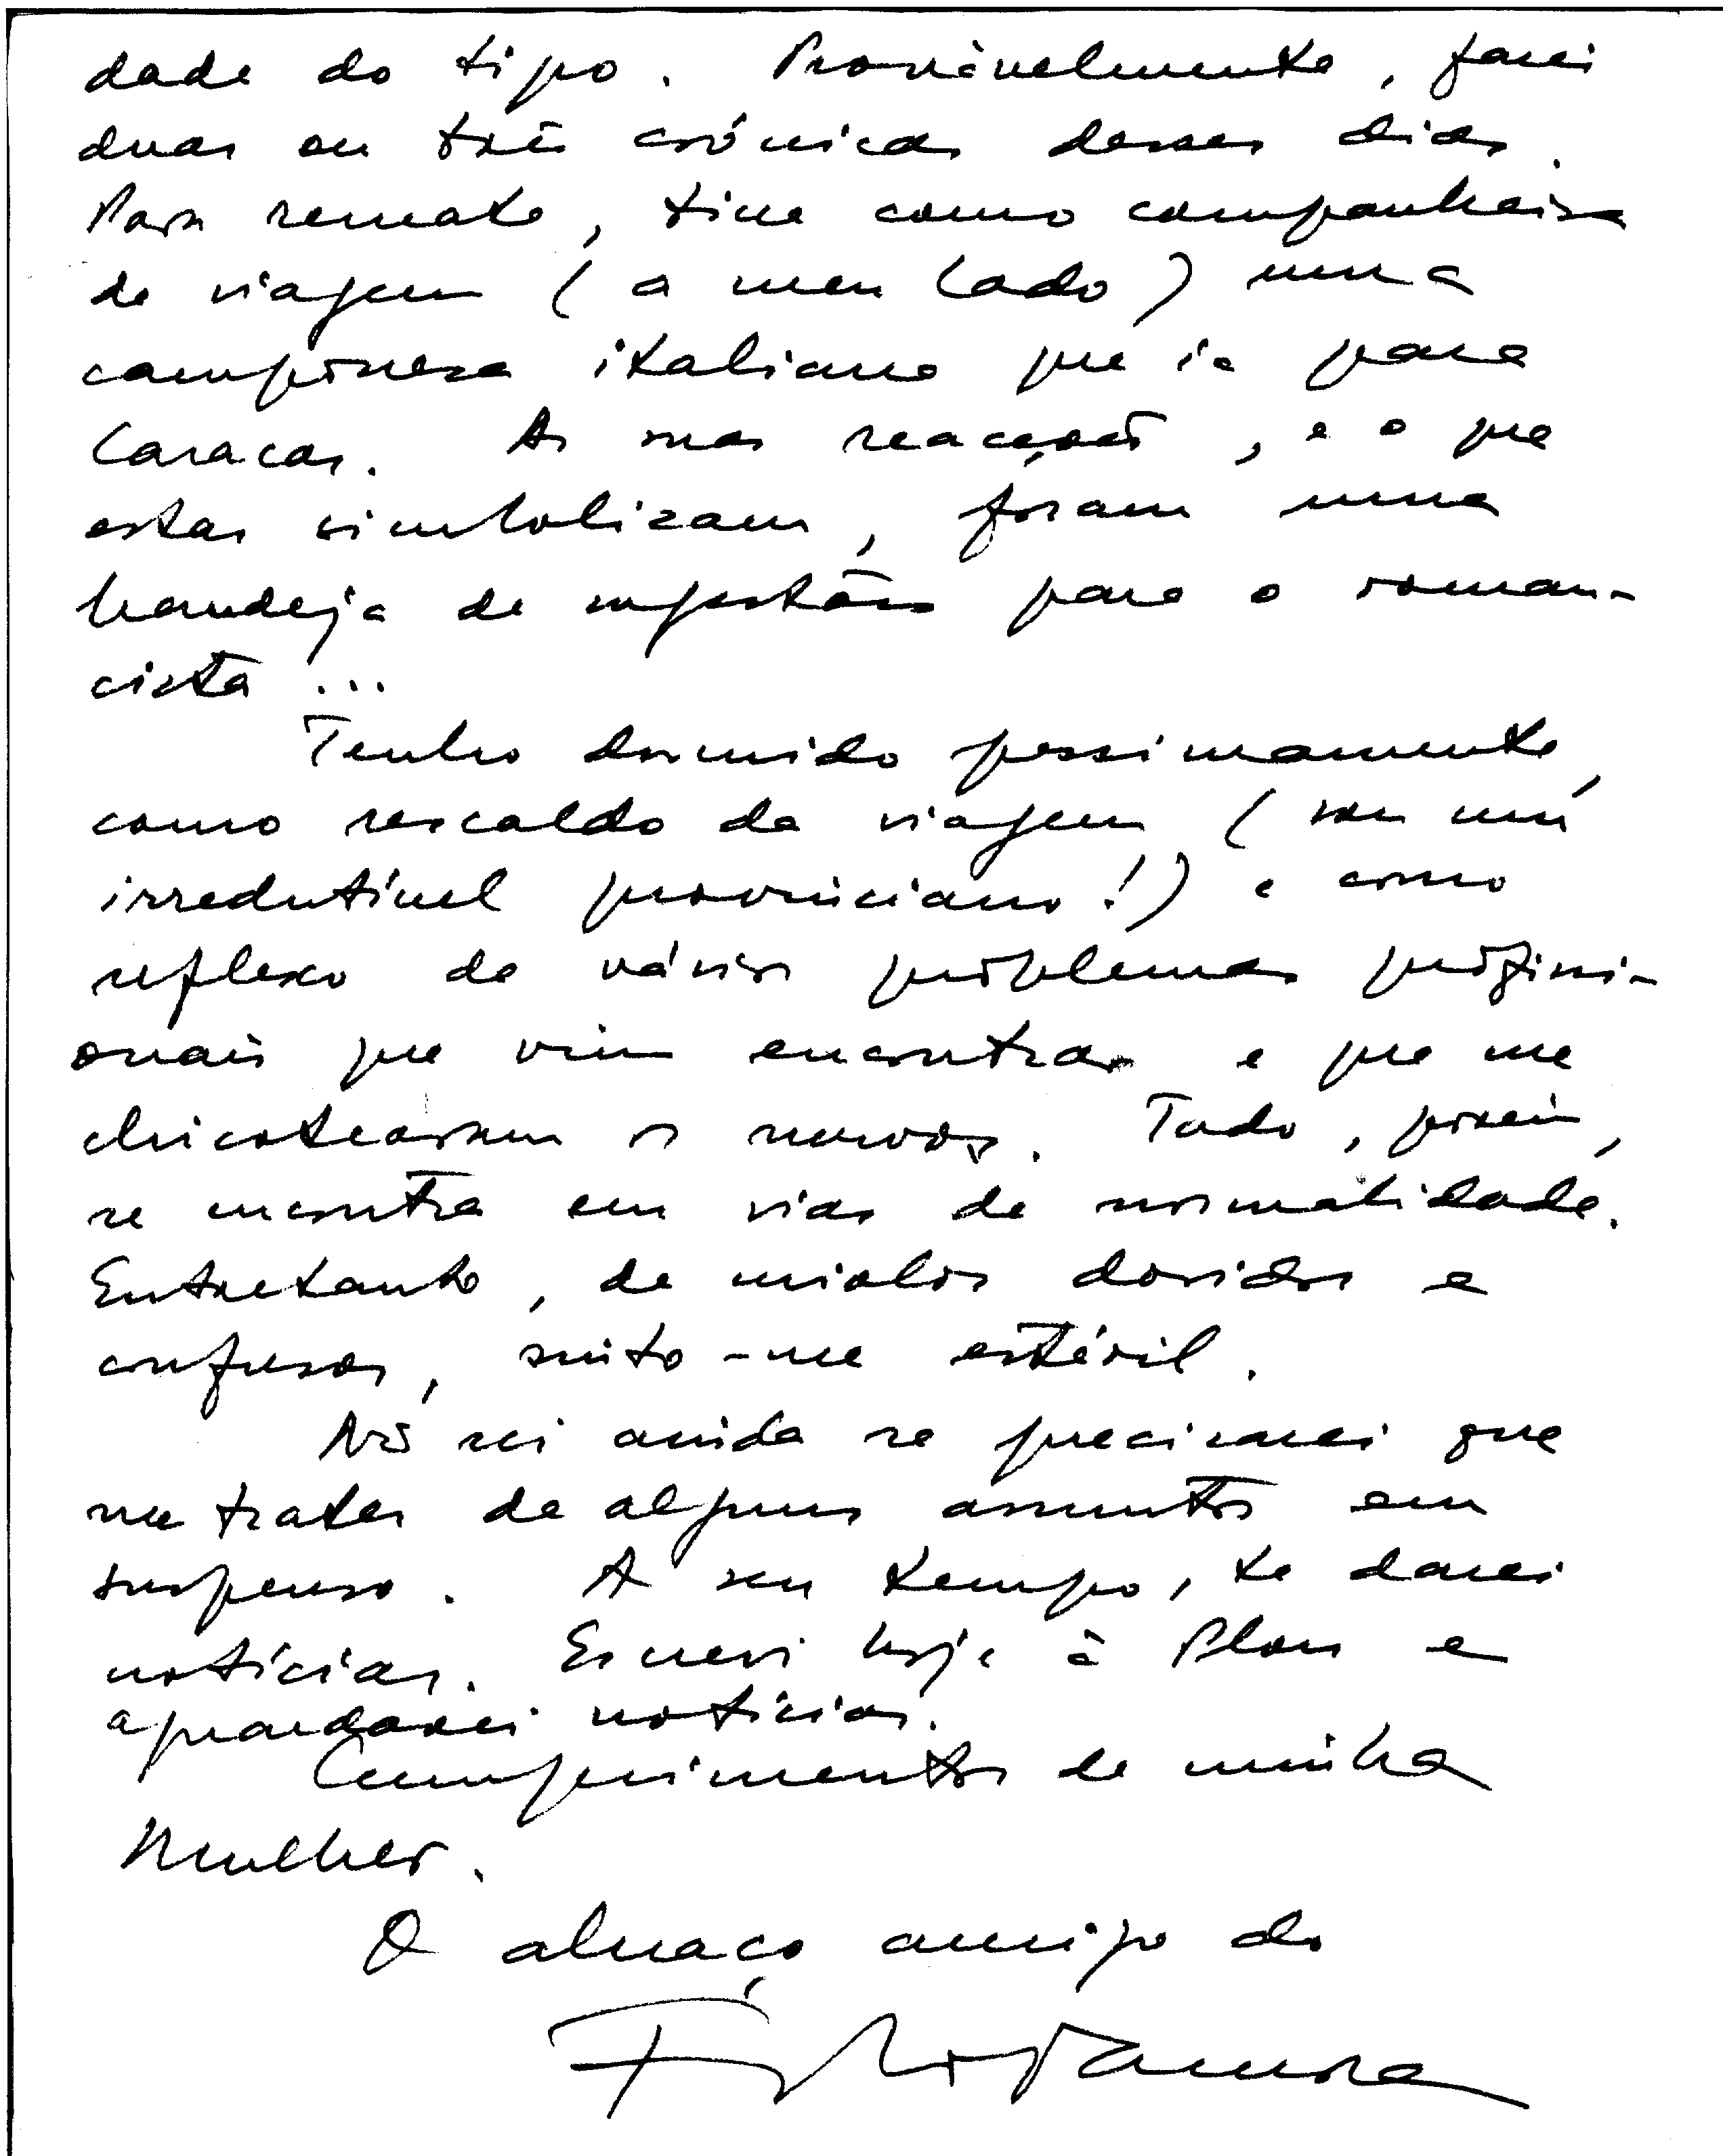 dade do tipo. Provàvelmente, farei
duas ou três crónicas desses dias.
Para remate, tive como companheira
de viagem (a meu lado) uma
camponesa italiana que ia para
Caracas. As suas reacções, e o que
estas simbolizam, foram uma
bandeja de sugestões para o roman-
cista ...
Tenho dormido pessimamente,
como rescaldo da viagem (sou um
irredutível provinciano!) e como
reflexo de vários problemas profissi-
onais que vim encontrar e que me
chicotearam os nervos. Tudo, porém,
se encontra em vias de normalidade.
Entretanto, de miolos doridos e
confusos, sinto-me estéril.
Não sei ainda se precisarei que
me trates de alguns assuntos em
suspenso. A seu tempo, te darei
notícias. Escrevi hoje à Plon e
aguardarei notícias.
Cumprimentos de minha
Mulher.
O abraço amigo do
F. Namora